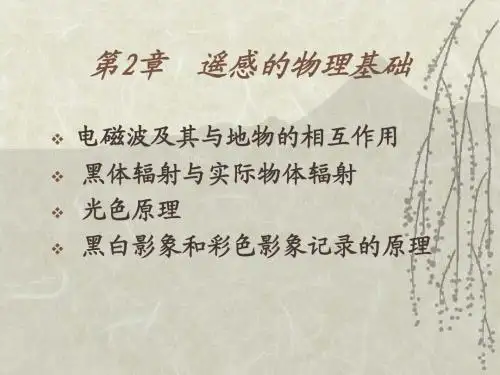 第2章 遥感的物理基础
电磁波及其与地物的相互作用
黑体辐射与实际物体辐射
光色原理
黑白影象和彩色影象记录的原理